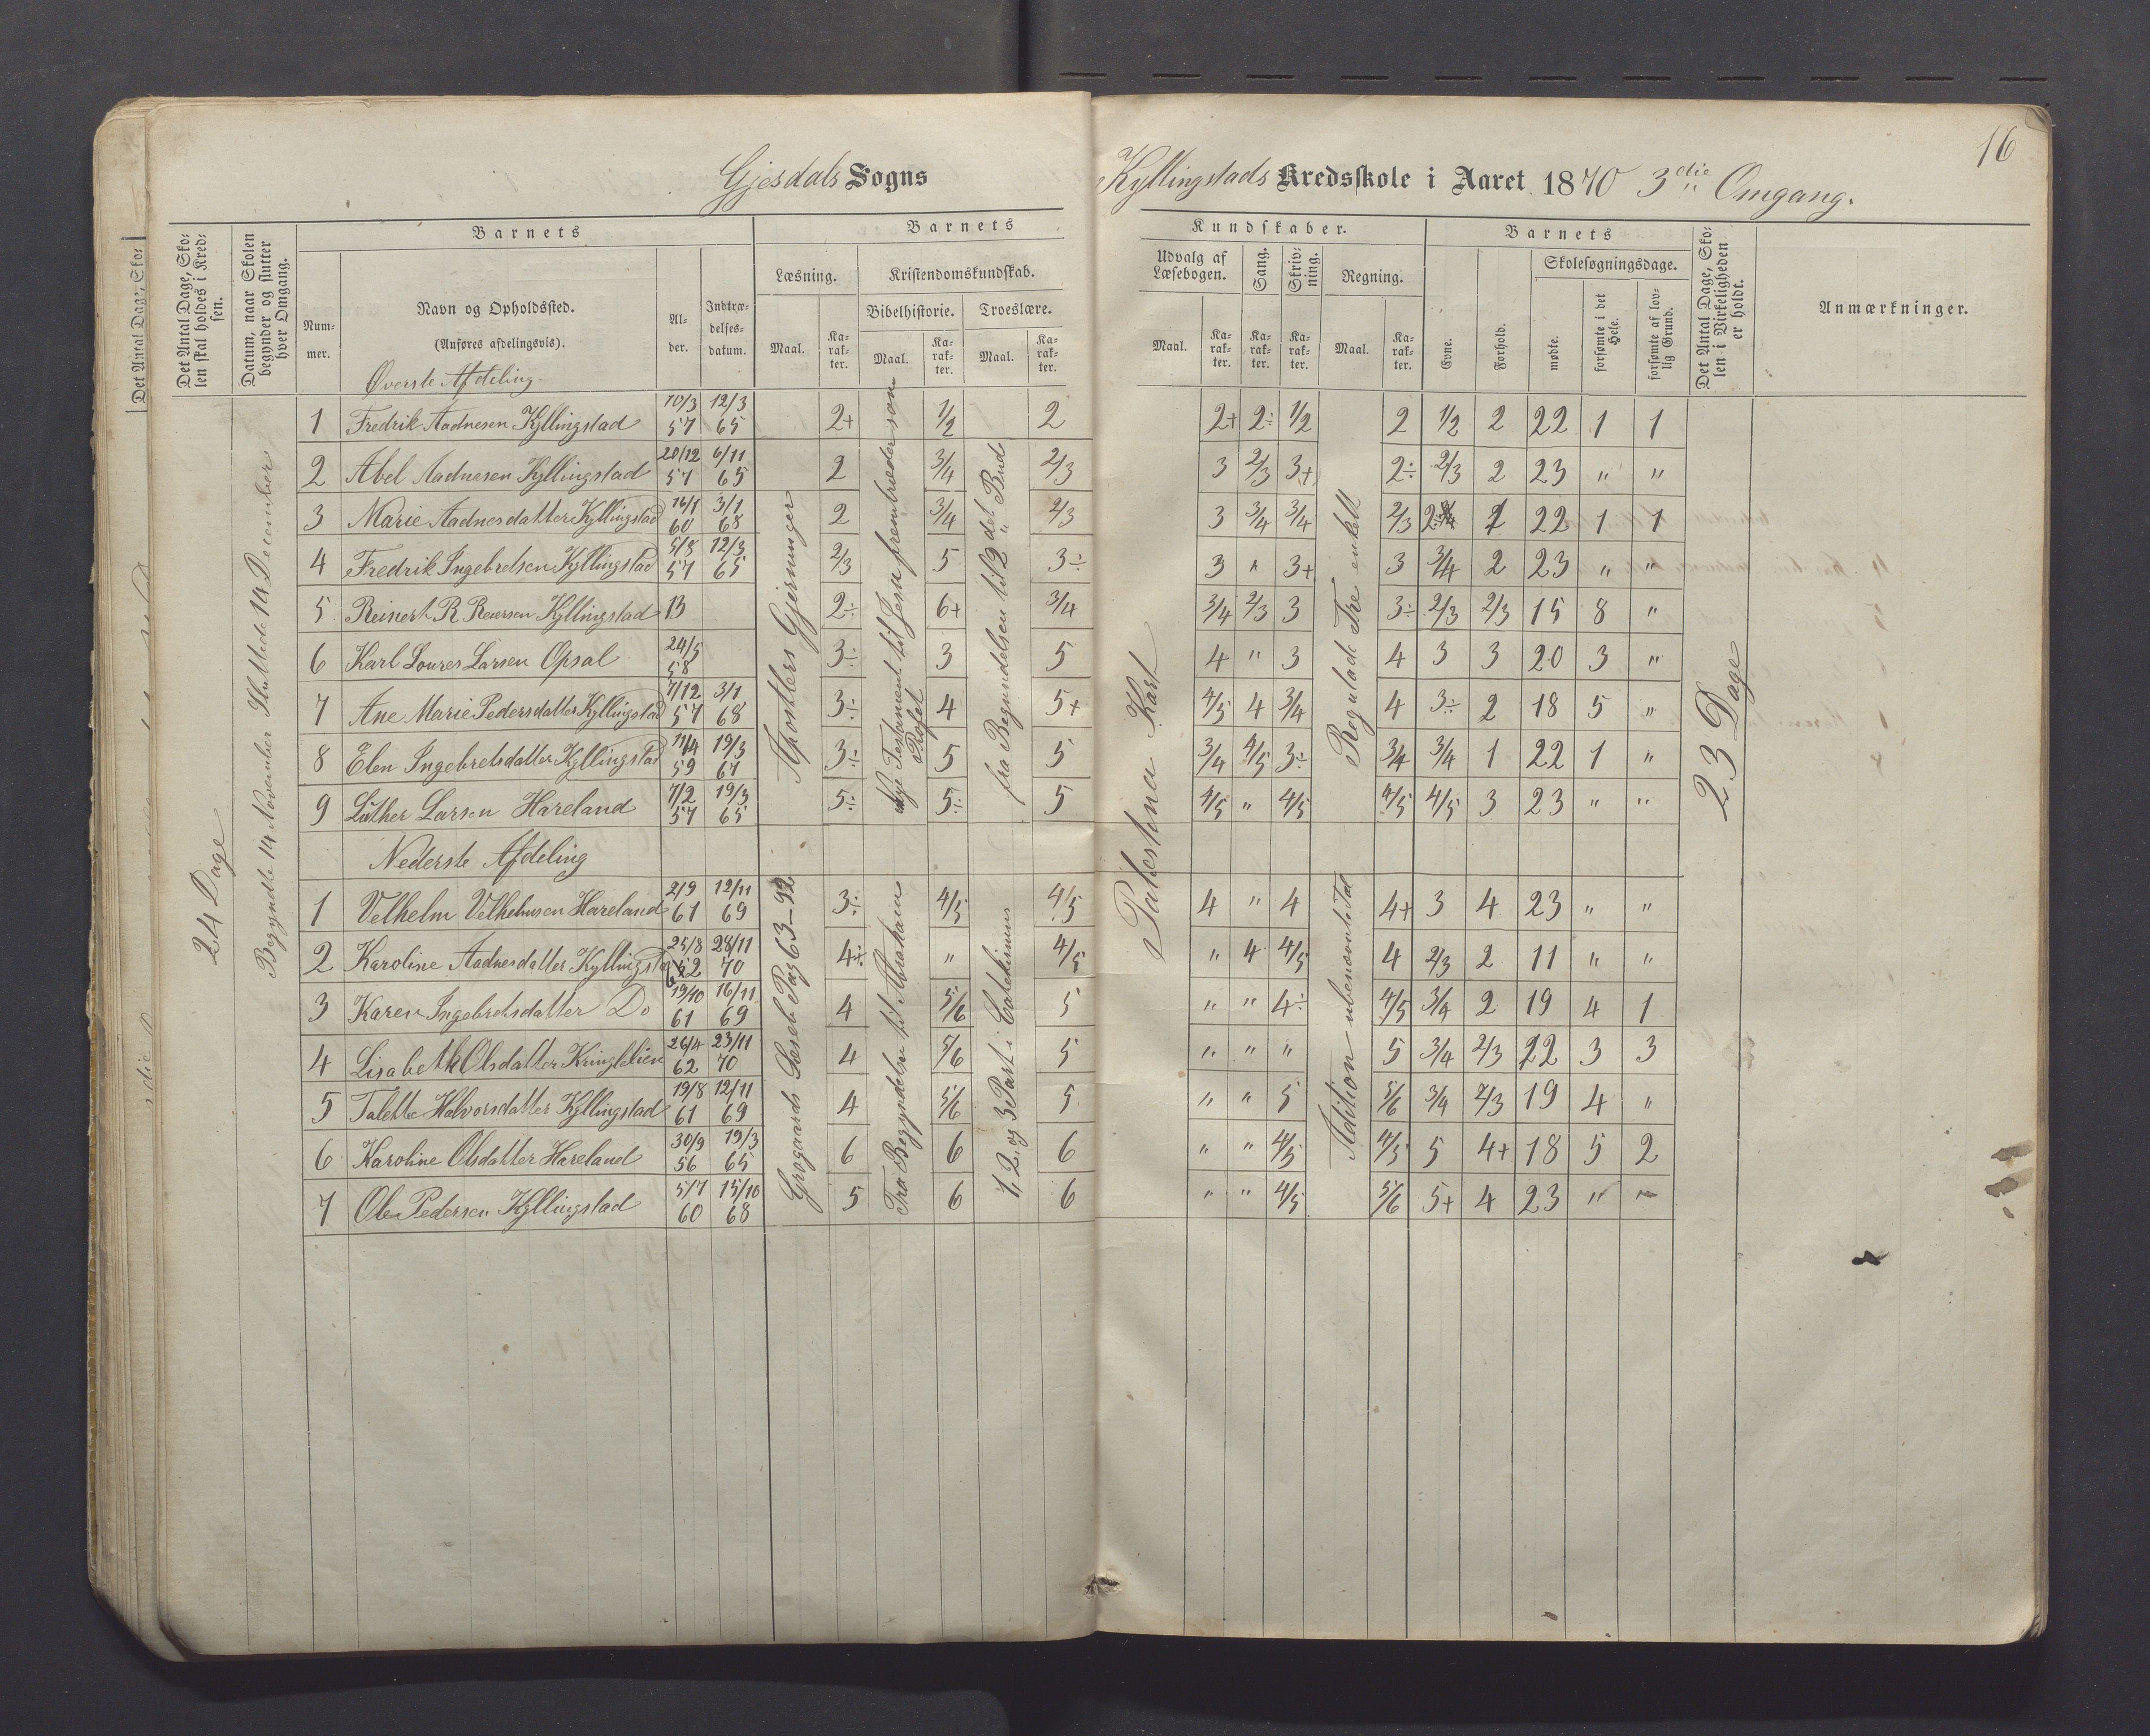 16
Gjesdals Sogns Kyllingstads Kredsskole i Aaret 1870 3die Omgang.
Det Antal Dage, Sko-
Det Antal Dage, Skolen skal holdes i Kredsen.
Datum, naar Skolen begynder og slutter hver Omgang.
Barnets
Nummer.
Navn og Opholdssted.
(Anføres afdelingsvis).
Alder.
Indtrædelsesdatum.
Barnets Kundskaber.
Læsning.
Maal.
Karakter.
Kristendomskundskab.
Bibelhistorie.
Maal.
Karakter.
Troeslære.
Maal.
Karakter.
Udvalg af Læsebogen.
Maal.
Karakter.
Sang.
Karakter.
Skrivning.
Karakter.
Regning.
Maal.
Karakter.
Barnets
Evne.
Forhold.
Skolesøgningsdage.
mødte.
forsømte i det Hele.
forsømte af lovlig Grund.
Det Antal Dage, Skolen i Virkeligheden er holdt.
Anmærkninger.
24 Dage
Begyndte 14 November Sluttede 14 December
Øverste Afdeling.
Apostlers Gjerninger
Nye Testament til Jesu fremtræden som Profet
fra Begyndelsen til 2det Bud
Palæstina Kart
Regulade Tre enkelt
23 Dage
1 Fredrik Aadnesen Kyllingstad 10/3 57 12/3 65 2+ 1/2 2 2+ 2÷ 1/2 2 1/2 2 22 1 1
2 Abel Aadnesen Kyllingstad 20/12 57 6/11 65 2 3/4 2/3 3 2/3 3+ 2÷ 2/3 2 23 " "
3 Marie Aadnesdatter Kyllingstad 16/1 60 3/1 68 2 3/4 2/3 3 3/4 3/4 2/3 2÷ 1 22 1 1
4 Fredrik Ingebretsen Kyllingstad 5/8 57 12/3 65 2/3 5 3÷ 3 " 3+ 3 3/4 2 23 " "
5 Reinert R Reiersen Kyllingstad 13 2÷ 6+ 3/4 3/4 2/3 3 3÷ 2/3 2/3 15 8 "
6 Karl Loures Larsen Opsal 24/5 58 3÷ 3 5 4 " 3 4 3 3 20 3 "
7 Ane Marie Pedersdatter Kyllingstad 7/12 57 3/1 68 3÷ 4 5+ 4/5 4 3/4 4 3÷ 2 18 5 "
8 Elen Ingebretsdatter Kyllingstad 11/4 59 19/3 67 3÷ 5 5 3/4 4/5 3÷ 3/4 3/4 1 22 1 "
9 Luther Larsen Hareland 7/2 57 19/3 65 5÷ 5÷ 5 4/5 " 4/5 4/5 4/5 3 23 " "
Nederste Afdeling
Grøgaards Læseb Pag 63-92
Fra Begyndelsen til Abraham
1, 2 og 3 Part i Catekismus
Adition ubenævnte Tal
1 Velhelm Velhelmsen Hareland 2/9 61 12/11 69 3÷ 4/5 4/5 4 " 4 4+ 3 4 23 " "
2 Karoline Aadnesdatter Kyllingstad 25/8 62 28/11 70 4÷ " 4/5 " 4 4/5 4 2/3 2 11 " "
3 Karen Ingebretsdatter Do 19/10 61 16/11 69 4 5/6 5 " " 4÷ 4/5 3/4 2 19 4 1
4 Lisabeth Olsdatter Kringlelien 26/4 62 23/11 70 4 5/6 5 " " " 5 3/4 2/3 12 3 3
5 Talette Halvorsdatter Kyllingstad 19/8 61 12/11 69 4 5/6 5 " " 5 5/6 3/4 2/3 19 4 "
6 Karoline Olsdatter Hareland 30/9 56 19/3 65 6 6 6 " " 4/5 4/5 5 4+ 18 5 2
7 Ole Pedersen Kyllingstad 5/7 60 15/10 68 5 6 6 " " 4/5 5/6 5+ 4 23 " "